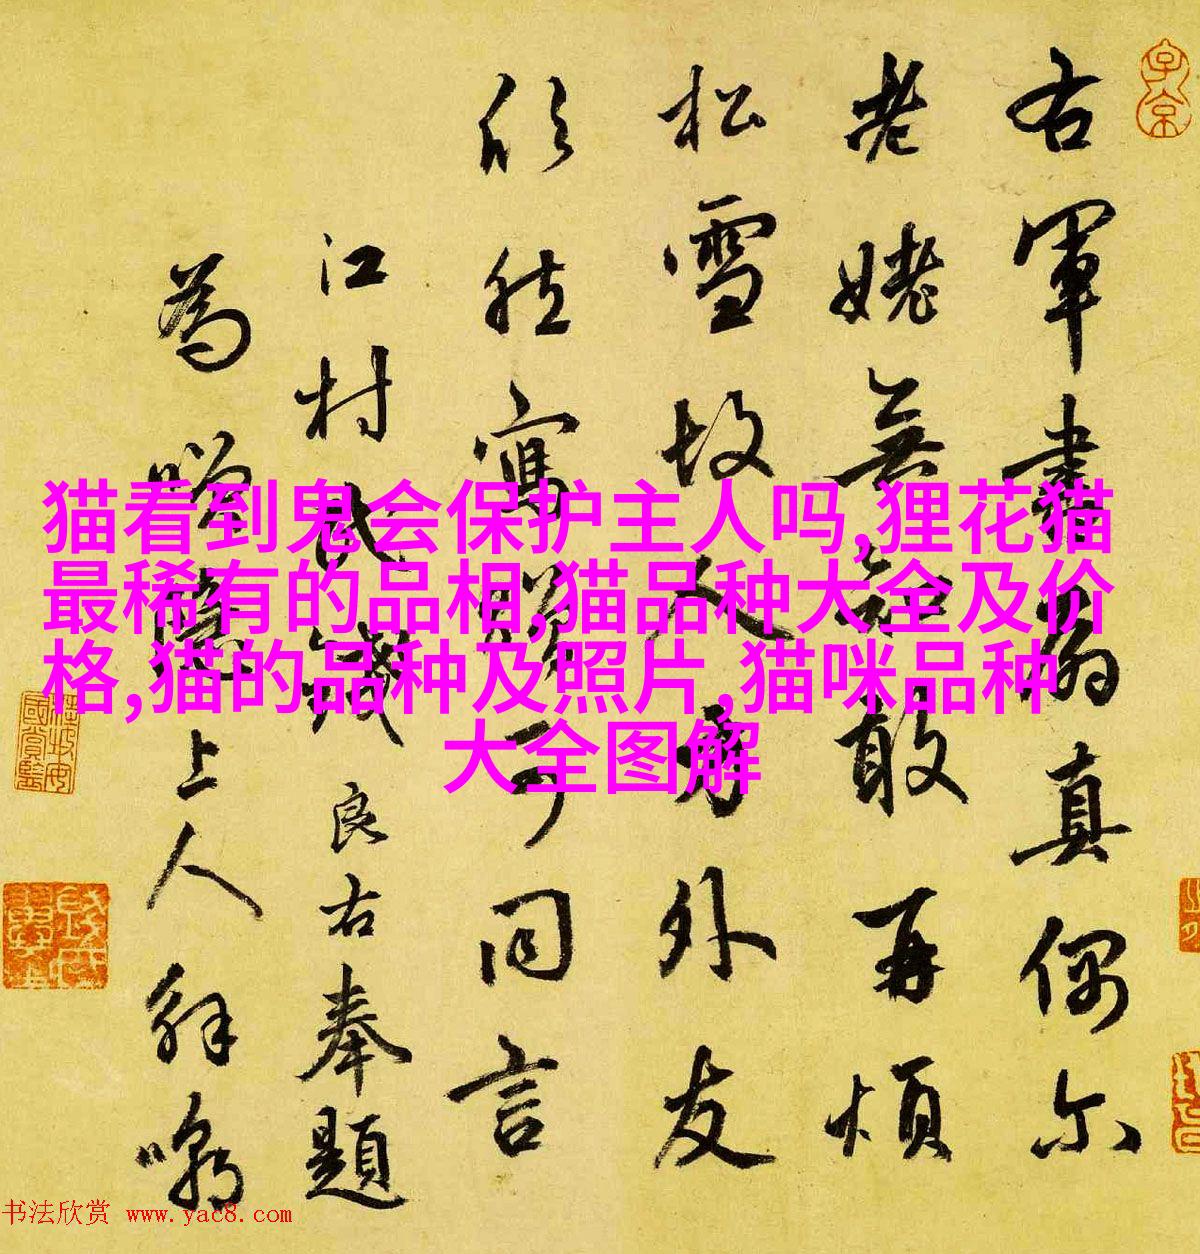 右軍書扇真偶尔
老姥無知敢再煩
松雪故人身外友
欣然寫贈可同言
江村民 良右奉題
為 上人解嘲
猫看到鬼会保护主人吗,狸花猫
最稀有的品相,猫品种大全及价
格,猫的品种及照片,猫咪品种
大全图解
子京
书法欣赏 www.yac8.com